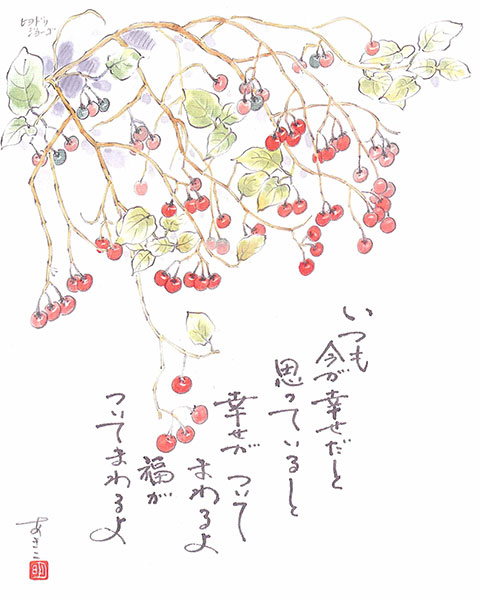 ヒヨドリ
ジョーゴ
いつも
今が幸せだと
思っているしと
幸せが ついて
まわるよ
福が
ついてまわるよ
あきこ
明